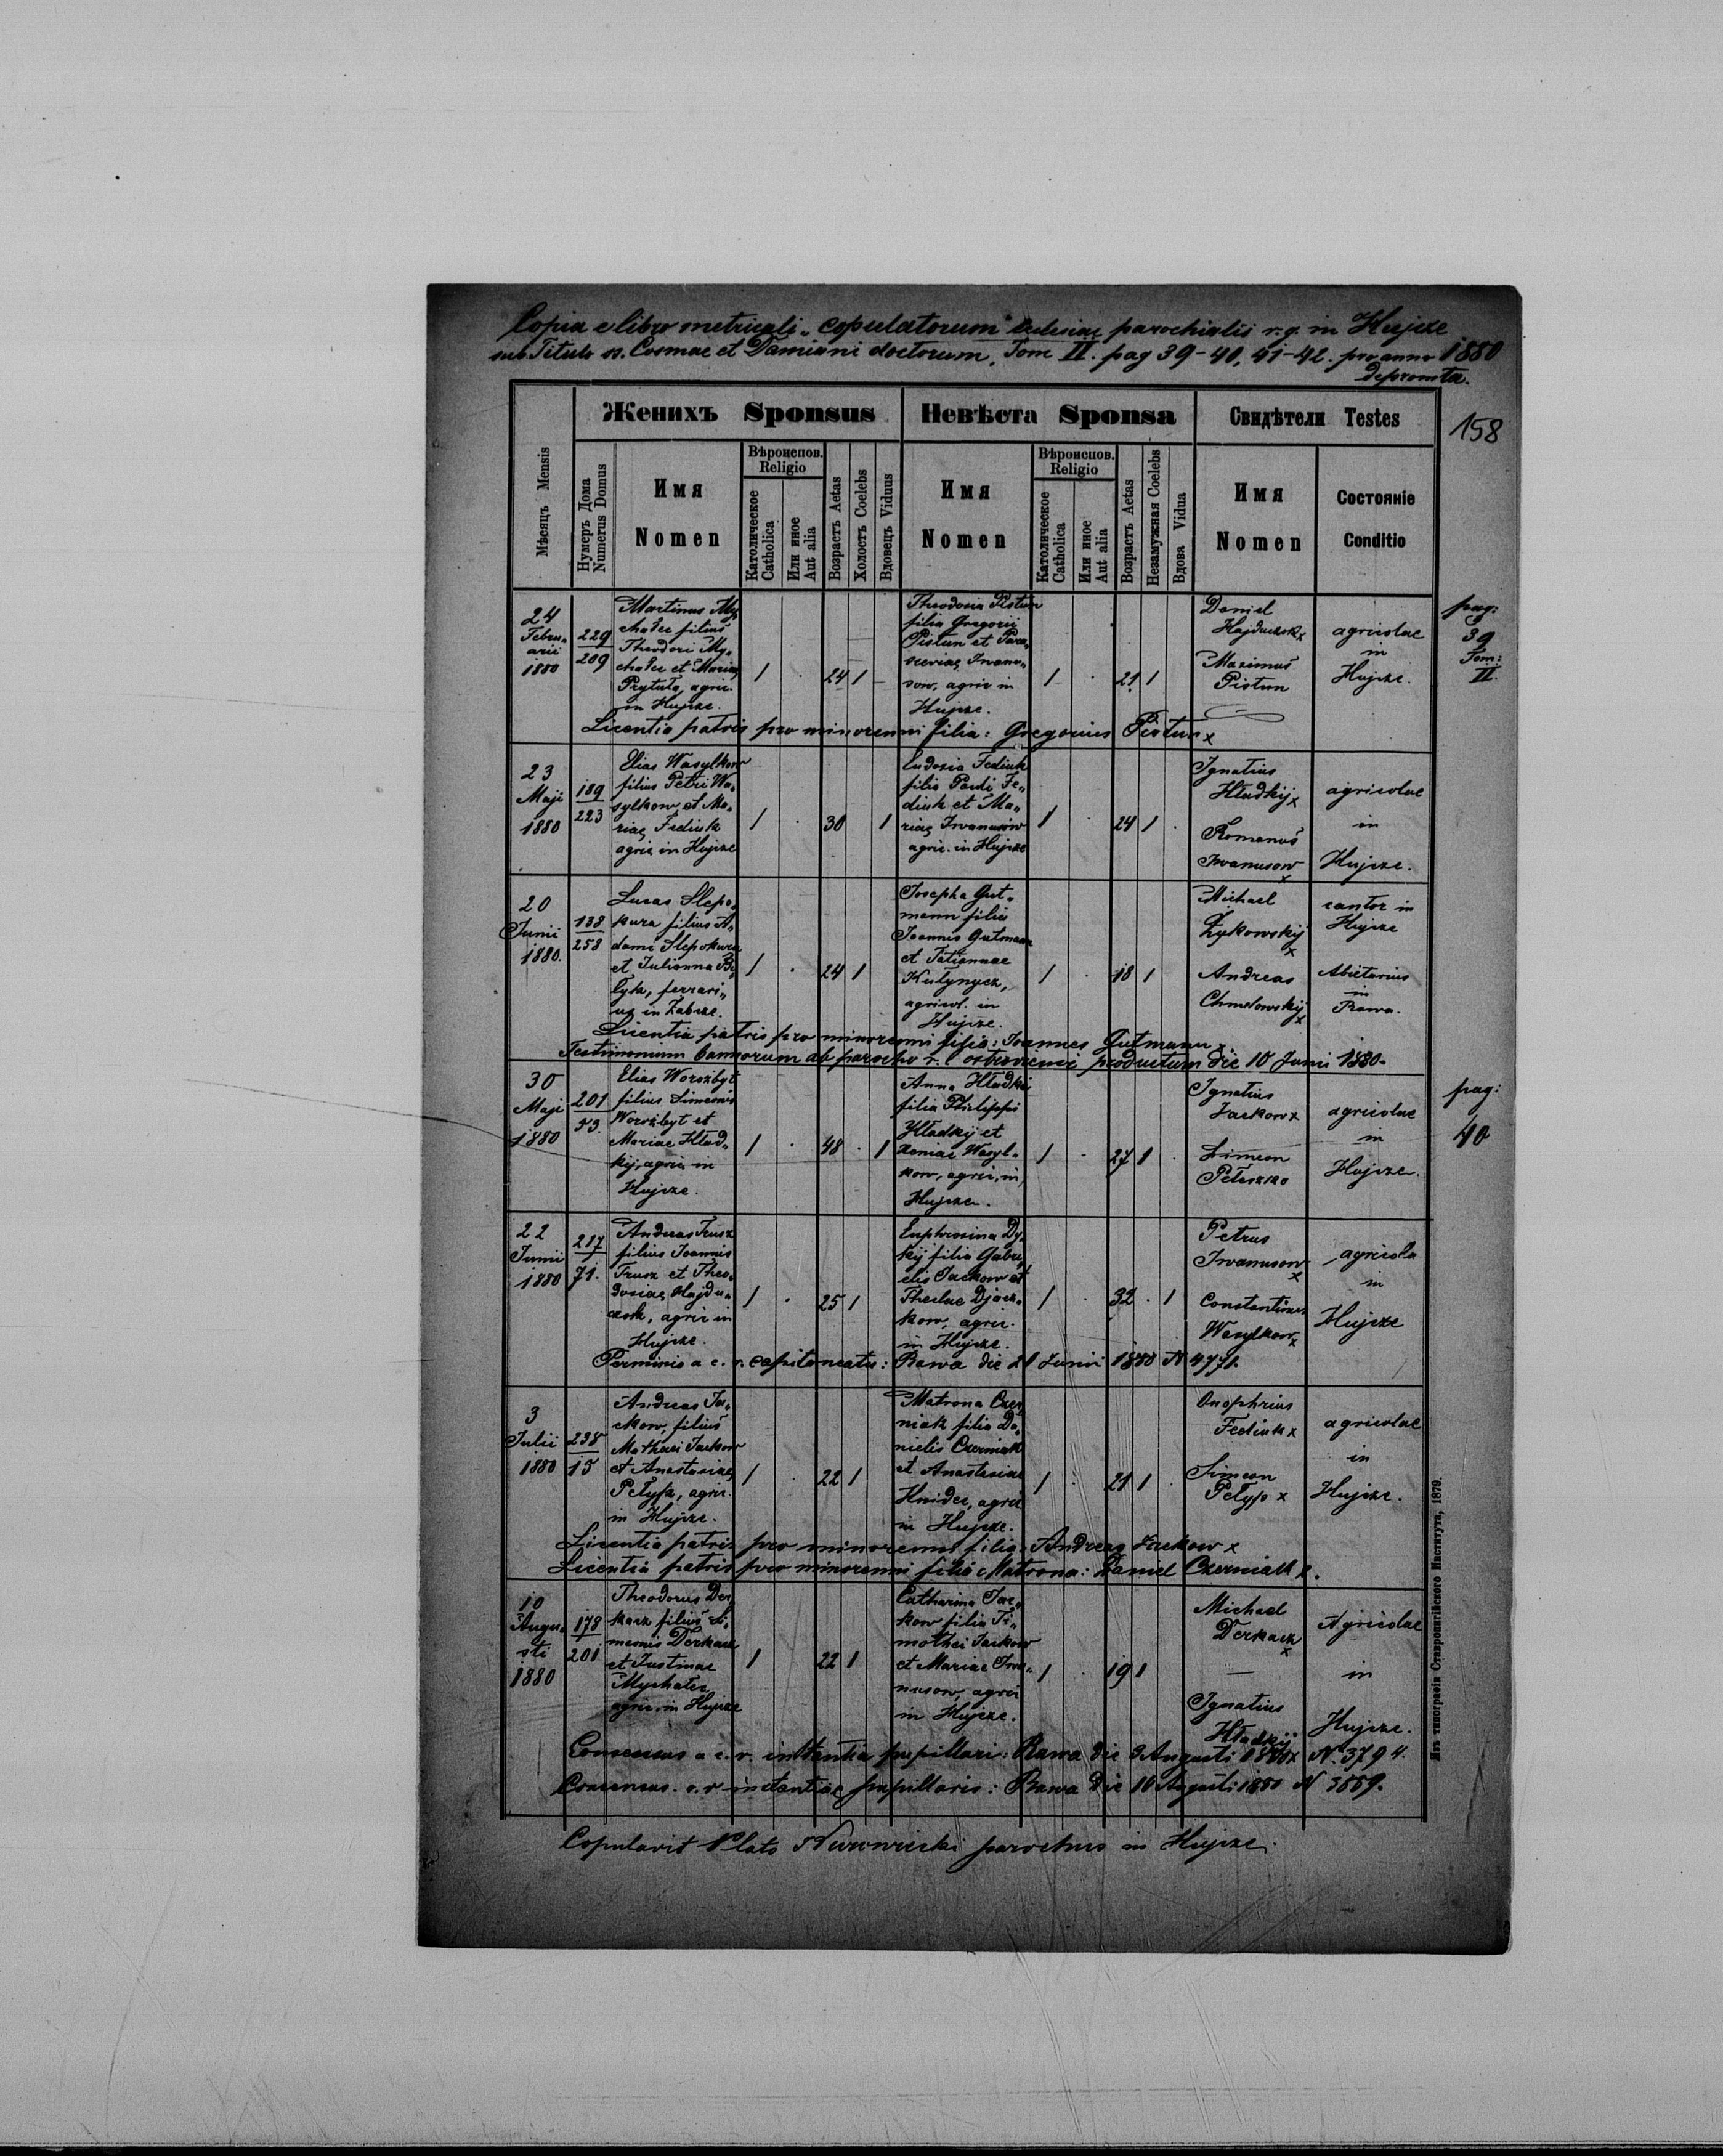 Copia e libro metricali „copulatorum" Eclesiae parochialis r. g. in Hujcze
sub Titulo ss. Cosmae et Damiani doctorum, Tom II. pag 39-40, 41-42. pro anno 1880
depromta.
158
Женихъ Sponsus
Невѣста Sponsa
Свидѣтели Testes
Мѣсяцъ Mensis
Нумеръ Дома
Numerus Domus
Имя
Nomen
Вѣроиспов.
Religio
Католическое
Catholica
Или иное
Aut alia
Возрастъ Aetas
Холостъ Coelebs
Вдовецъ Viduus
Имя
Nomen
Вѣроиспов.
Religio
Католическое
Catholica
Или иное
Aut alia
Возрастъ Aetas
Незамужная Coelebs
Вдова Vidua
Имя
Nomen
Состояніе
Conditio
24
Febru„
arii
1880
229
209
Martinus My„
chalec filius
Theodori My„
chalec et Mariae
Prytuła, agric.
in Hujcze.
1
24
1
Theodosia Pistun
filia Gregorii
Pistun et Para„
sceviae Iwanu„
sow, agric in
Hujcze.
1
21
1
Daniel
Hajduczok x
Maximus
Pistun
agricolae
in
Hujcze.
pag:
39
Tom:
II.
Licentia patris pro minorenni filia: Gregorius Pistun x
23
Maji
1880
189
223
Elias Wasylkow
filius Petri Wa„
sylkow et Ma„
riae Fediuk
agric in Hujcze
1
30
1
Eudoxia Fediuk
filia Pauli Fe„
diuk et Ma„
riae Iwanusów
agric. in Hujcze
1
24
1
Ignatius
Hładkij x
Romanus
Iwanusow
x
agricolae
in
Hujcze.
20
Junii
1880.
188
258
Lucas Slepo„
kura filius A„
dami Slepokura
et Julianna
ferrari„
us in Zabcze.
1
24
1
Josepha Gut„
mann filia
Joannis Gutmann
et Tatiannae
Kulynycz,
agricol. in
Hujcze.
1
18
1
Michael
Zykowskij
x
Andreas
Chmelowskij
x
cantor in
Hujcze
Abietarius
in
Rawa.
Licentia patris pro minorenni filia: Joannes Gutmann x
Testimonium bannorum ab parocho r. l. productum die 10 Juni 1880.
30
Maji
1880
201
53.
Elias Worożbyt
filius Simeonis
Worożbyt et
Mariae Hład„
kij, agric in
Hujcze.
1
48
1
Anna Hładkij
filia Philippi
Hładkij et
Xeniae Wasyl„
kow, agric, in
Hujcze.
1
27
1
Ignatius
Jackow x
Simeon
Peluszko
agricolae
in
Hujcze.
pag:
40
22
Junii
1880
217
71.
Andreas Trusz
filius Joannis
Trusz et Theo„
dosiae Hajdu„
czok, agric in
Hujcze.
1
25
1
Euphrosina Dy„
kij filia Gabri„
elis Jackow et
Theclae Djacz„
kow, agric.
in Hujcze.
1
32
1
Petrus
Iwanusow
x
Constantinus
Wasylkow x
agricola
in
Hujcze
Permissio a c. r. capitaneatu: Rawa die 21 Junii 1880 N 4771.
3
Julii
1880
238
15
Andreas Ja„
ckow, filius
Mathaei Jackow
et Anastasiae
Pełyp, agric.
in Hujcze.
1
22
1
Matrona Czer„
niak filia Da„
nielis Czerniak
et Anastasiae
Hnidec, agric
in Hujcze.
1
21
1
Onophrius
Fediuk x
Simeon
Pełyp x
agricolae
in
Hujcze.
Licentia patris pro minorenni filio: Andreas Jackow x
Licentia patris pro minorenni filia Matrona: Daniel Czerniak x.
10
Augu„
sti
1880
178
201
Theodorus Der„
kacz filius Si„
meonis Derkacz
et Justinae
Mychalec
agric. in Hujcze
1
22
1
Catharina Jac„
kow filia Ti„
mothei Jackow
et Mariae Iwa„
nusow, agric
in Hujcze.
1
19
1
Michael
Derkacz
x
Ignatius
Hładkij
x
Agricolae
in
Hujcze.
Consensus a c. r. instantia pupillari: Rawa die 3 Augusti 1880 N. 3794.
Consensus c. r instantiae pupillaris: Rawa die 10 Augusti 1880 N 3889.
Copulavit Plato parochus in Hujcze.
Изъ типографіи Ставропигійского Института, 1879.